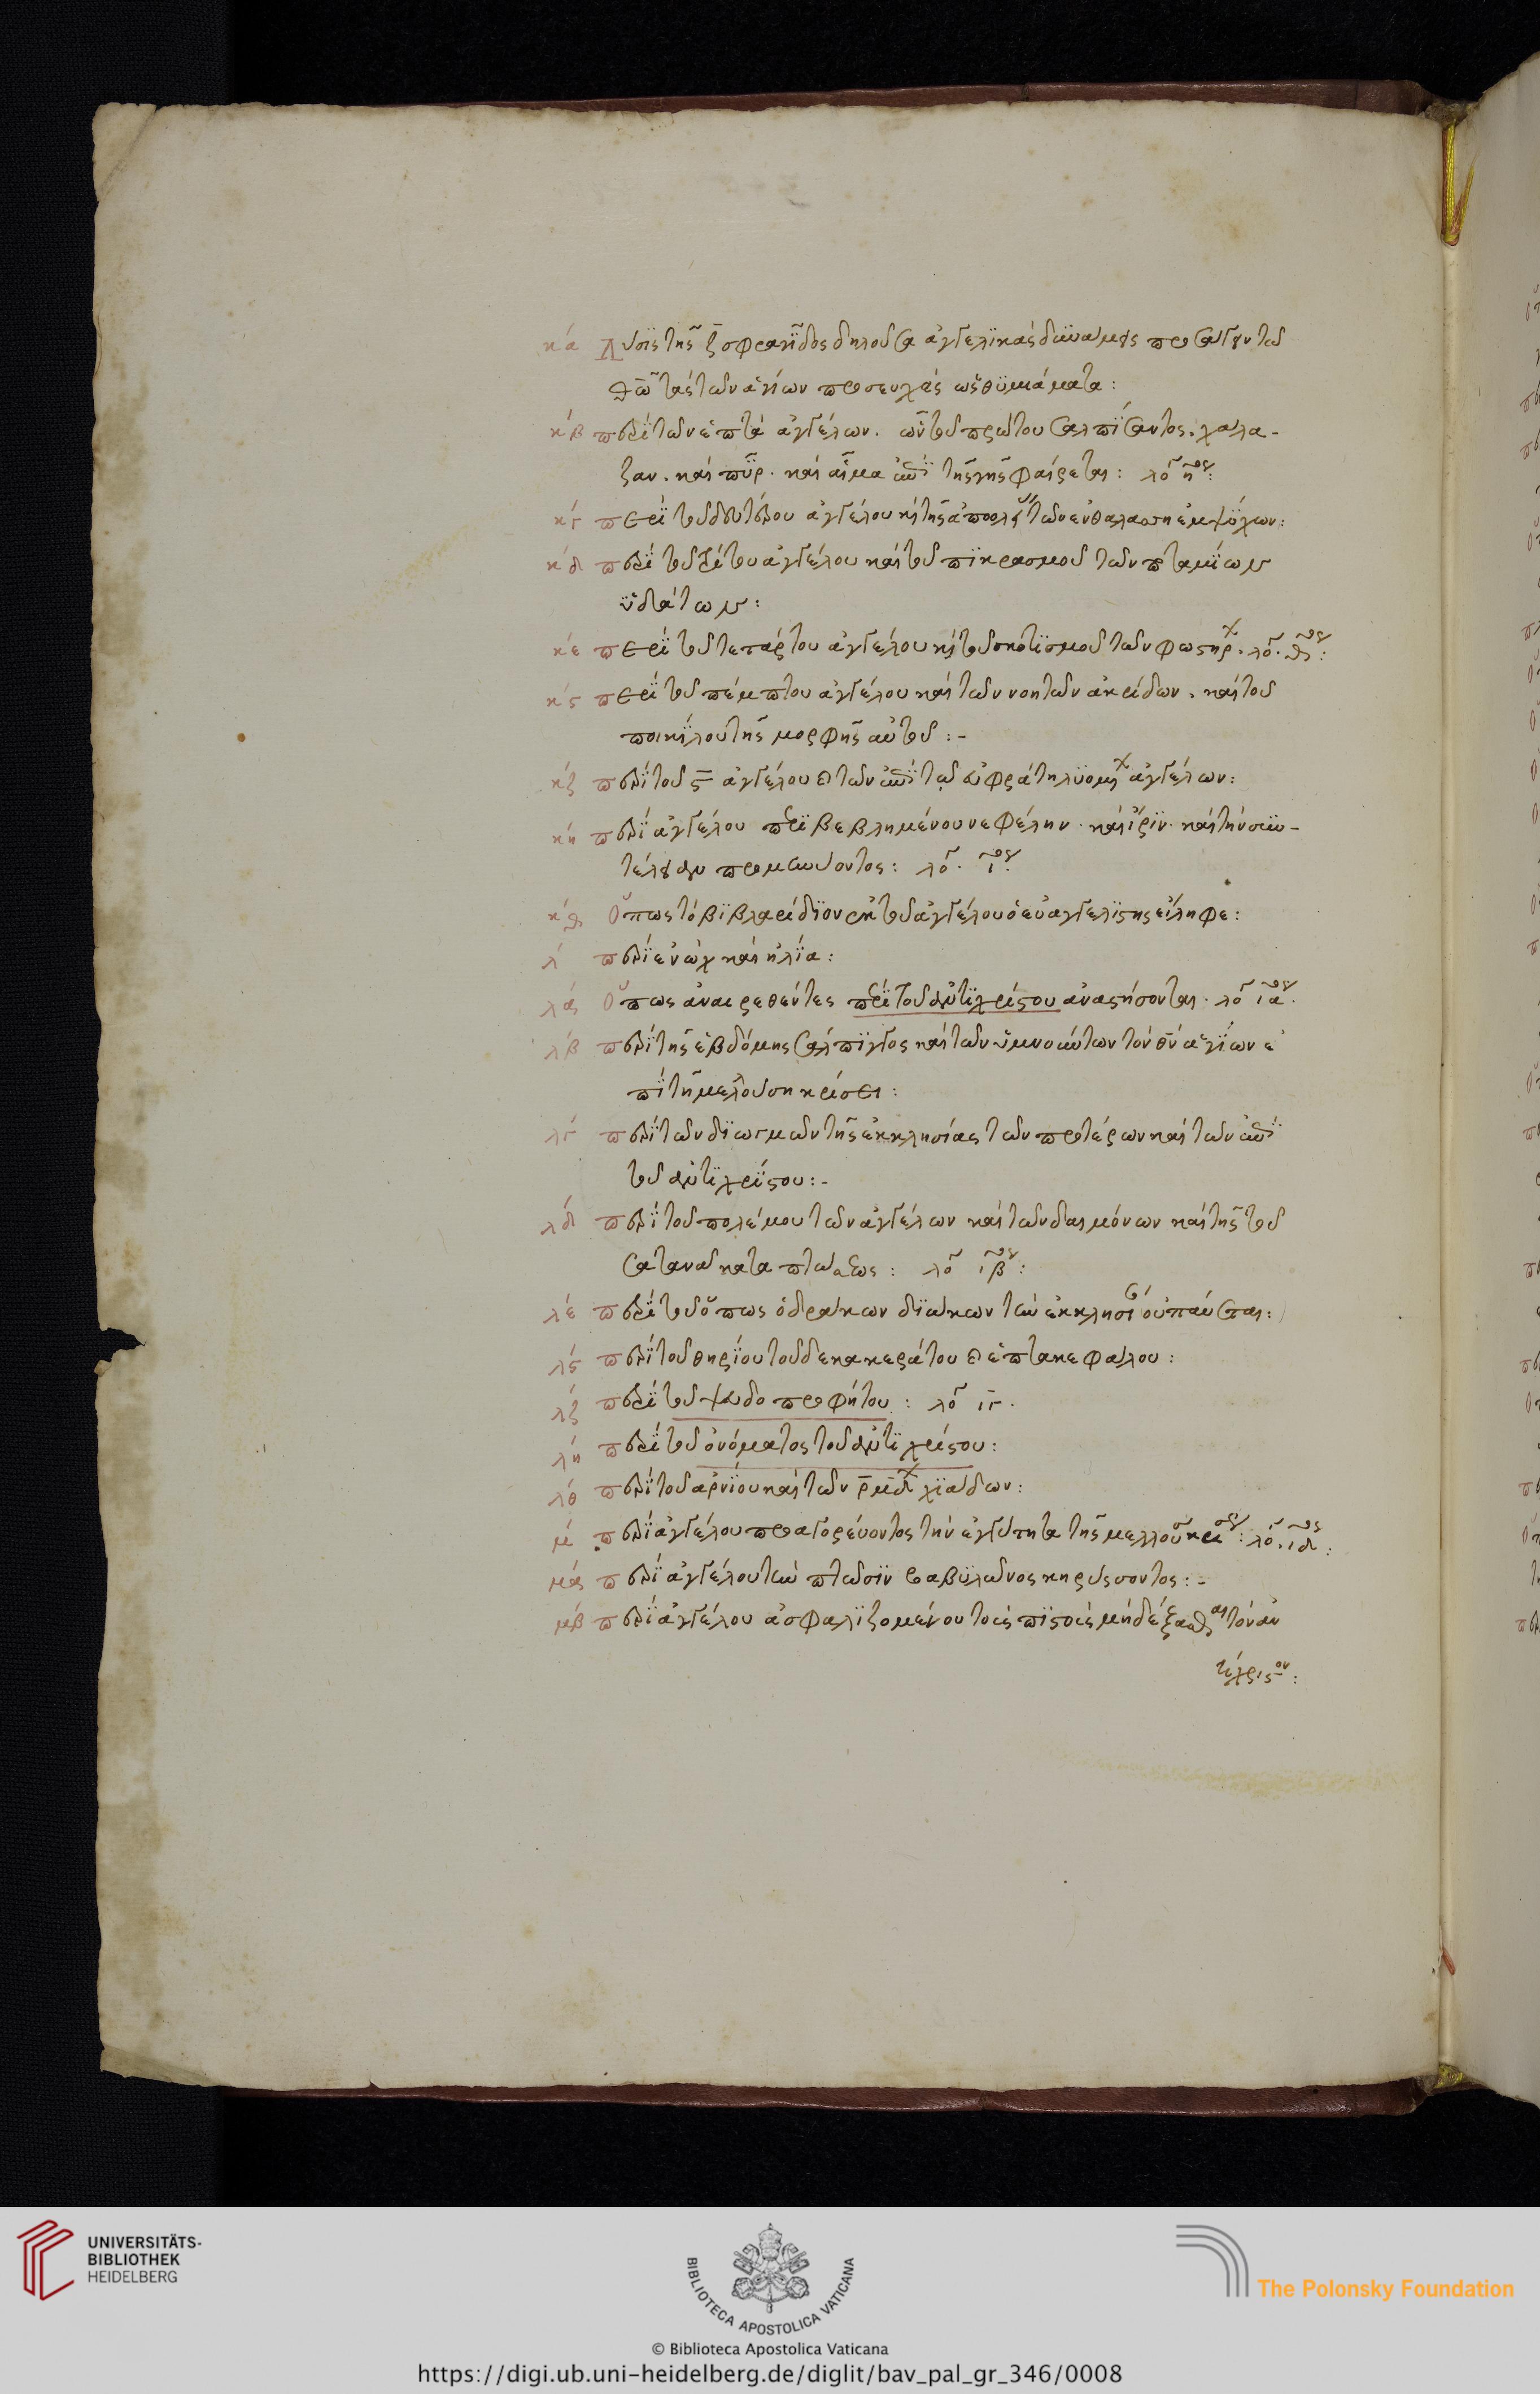 κα Λύσις τῆς ζ̄ σφραγῖδος δηλοῦσα ἀγγελικὰς δυνάμεις προσαγγούσας τῶ
θῶ τὰς τῶν ἁγίων προσευχὰς ὡς θυμιάματα:
κβ περὶ τῶν ἑπτὰ ἀγγέλων. ὧν τοῦ πρώτου σαλπίσαντος. χάλα-
ζαν. καὶ πῦρ. καὶ αἷμα ἐπὶ τῆς γῆς φαίρεται: λό η:
κγ περὶ τοῦ δευτέρου ἀγγέλου κ τῆς ἀπολεί τῶν ἐν θαλάσση ἐμψύχων:
κδ περὶ τοῦ τρίτου ἀγγέλου καὶ τοῦ πικρασμοῦ τῶν ποταμίων
ὑδάτων:
κε περὶ τοῦ τετάρτου ἀγγέλου κ τοῦ σκοτισμοῦ τῶν φωστηρ. λό. θ:
κς περὶ τοῦ πέμπτου ἀγγέλου καὶ τῶν νοητῶν ἀκρίδων. καὶ τοῦ
ποικίλου τῆς μορφῆς αὐτοῦ:-
κζ περὶ τοῦ ς̄ ἀγγέλου κ τῶν ἐπὶ τῶ εὐφράτη λυομ ἀγγέλων:
κη περὶ ἀγγέλου περιβεβλημένου νεφέλην. καὶ ἴριν. καὶ τὴν συν-
τέλειαν προμηνύοντος: λό. ι:
κθ Ὅπως τὸ βιβλαρίδιον ἐκ τοῦ ἀγγέλου ὁ εὐαγγελιστὴς εἴληφε:
λ περὶ ἐνὼχ καὶ ἠλία:
λα Ὅπως ἀναιρεθέντες περὶ τοῦ ἀντιχρίστου ἀναστήσονται. λό ια.
λβ περὶ τῆς ἑβδόμης σάλπιγγος καὶ τῶν ὑμνούντων τὸν θν ἁγίων ἐ
πὶ τῆ μελλούση κρίσει:
λγ περὶ τῶν διωγμῶν τῆς ἐκκλησίας τῶν προτέρων καὶ τῶν ἐπὶ
τοῦ ἀντιχρίστου:-
λδ περὶ τοῦ πολέμου τῶν ἀγγέλων καὶ τῶν δαιμόνων καὶ τῆς τοῦ
σατανᾶ καταπτώσεως: λό ιβ:
λε περὶ τοῦ ὅπως ὁ δράκων διώκων τὴν ἐκκλησί οὐ παύσεται:
λς περὶ τοῦ θηρίου τοῦ δεκακεράτου κ ἑπτακεφάλου:
λζ περὶ τοῦ ψευδοπροφήτου: λό ιγ.
λη περὶ τοῦ ὀνόματος τοῦ ἀντιχρίστου:
λθ περὶ τοῦ ἀρνίου καὶ τῶν ρμδ χιάδων:
μ περὶ ἀγγέλου προαγορεύοντος τὴν ἐγγύτητα τῆς μελλού κρί: λό. ιδ:
μα περὶ ἀγγέλου τὴν πτῶσιν βαβυλῶνος κηρύσσοντος:-
μβ περὶ ἀγγέλου ἀσφαλιζομένου τοὺς πιστοὺς μὴ δέξασθαι τὸν ἀν
τίχριστον:
UNIVERSITÄTS-
BIBLIOTHEK
HEIDELBERG
BIBLIOTECA APOSTOLICA VATICANA
The Polonsky Foundation
© Biblioteca Apostolica Vaticana
https://digi.ub.uni-heidelberg.de/diglit/bav_pal_gr_346/0008